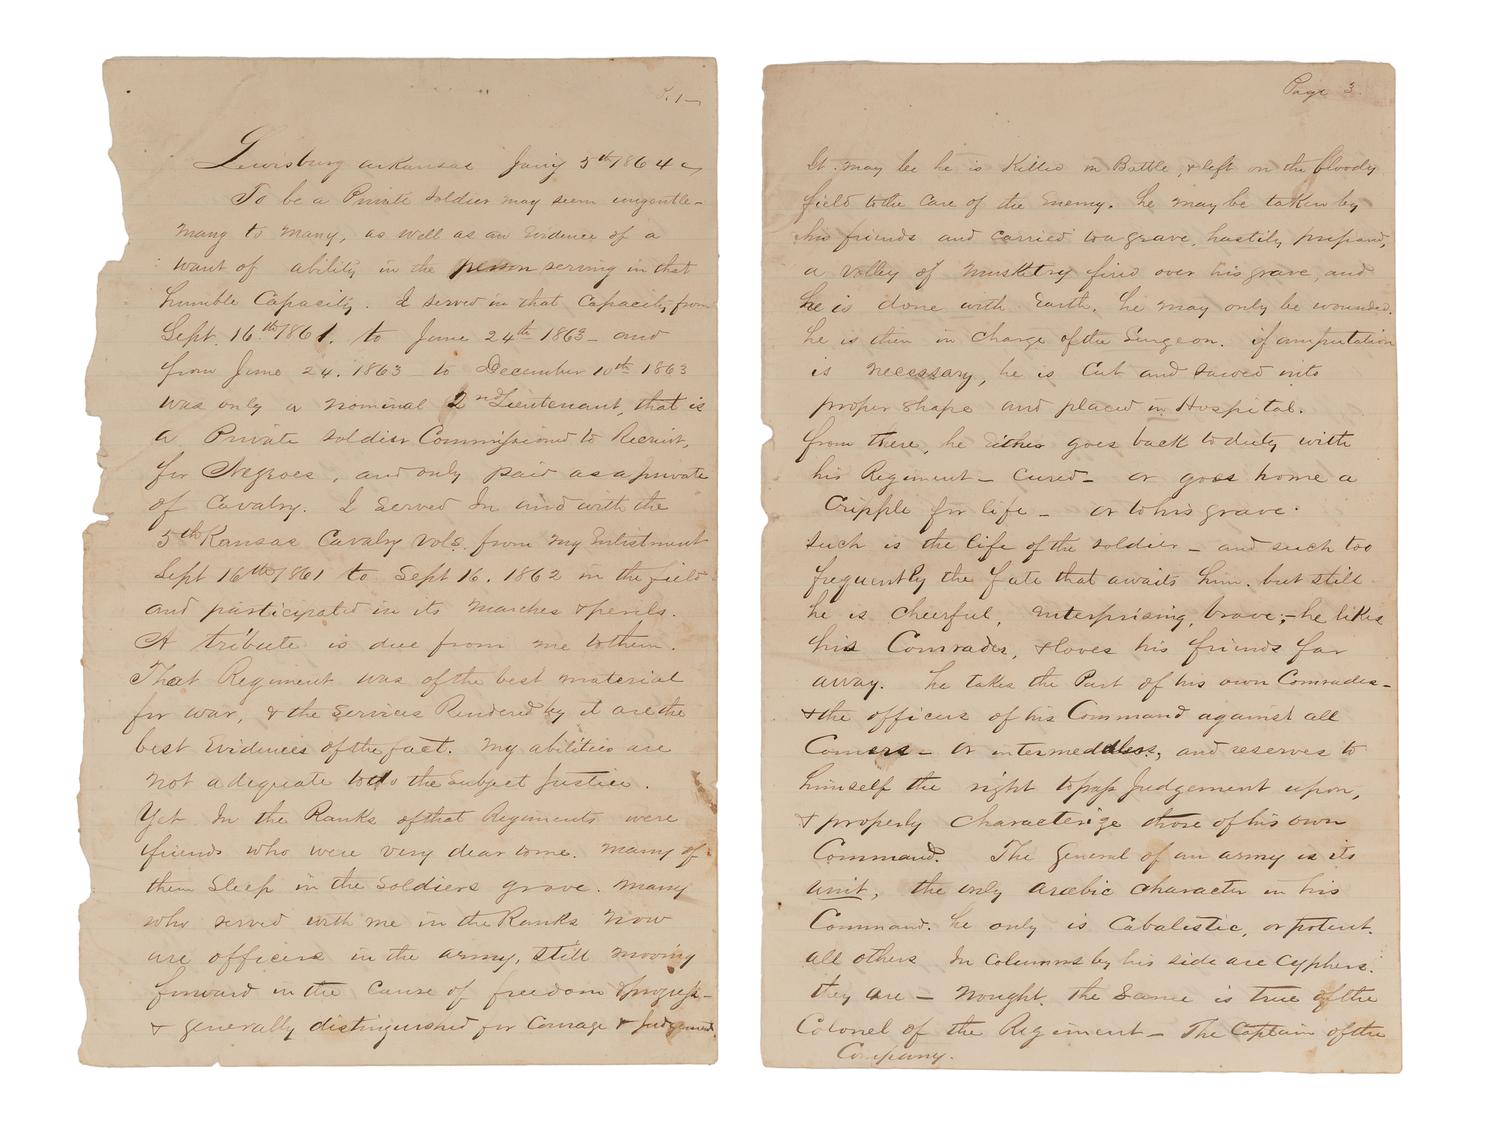 P. 1—
Lewisburg Arkansas Jany 5th 1864
To be a Private Soldier may seem ungentle-
manly to many, as well as an Evidence of a
want of ability in the person serving in that
humble Capacity. I served in that Capacity from
Sept. 16th 1861. to June 24th 1863 – and
from June 24. 1863 to December 10th 1863
was only a nominal 2nd Lieutenant, that is
a Private soldier Commissioned to Recruit,
for Negroes, and only paid as a private
of Cavalry. I Served In and with the
5th Kansas Cavalry Vols. from my Enlistment
Sept 16th 1861 to Sept 16. 1862 in the field
and participated in its Marches & perils.
A tribute is due from me to them.
That Regiment was of the best material
for war, & the Services Rendered by it are the
best Evidences of the fact. My abilities are
not adequate to do the Subject Justice.
Yet In the Ranks of that Regiments were
friends who were very dear to me. Many of
them Sleep in the Soldiers grave. Many
who served with me in the Ranks Now
are officers in the army, still moving
forward in the Cause of freedom & progress–
& generally distinguished for Courage & Judgement.
Page 3
It may be he is Killed in Battle, & left on the bloody
field to the Care of the Enemy. he may be taken by
his friends and carried to a grave, hastily prepared,
a volley of Musketry fired over his grave, and
he is done with Earth. he may only be wounded.
he is then in Charge of the Surgeon. if amputation
is necessary, he is Cut and sawed into
proper shape and placed in Hospital.
from there, he either goes back to duty with
his Regiment – Cured – or goes home a
Cripple for life – or to his grave.
Such is the life of the soldier – and such too
frequently the fate that awaits him. but still
he is cheerful, Enterprising, brave; – he likes
his Comrades, & loves his friends far
away. he takes the Part of his own Comrades –
& the officers of his Command against all
Comers – or intermeddlers, and reserves to
himself the right to pass Judgement upon,
& properly Characterize those of his own
Command. The General of an army is its
unit, the only arabic character in his
Command. he only is Cabalistic, or potent.
all others In Columns by his side are Cyphers.
they are – Nought. The Same is true of the
Colonel of the Regiment – The Captain of the
Company.